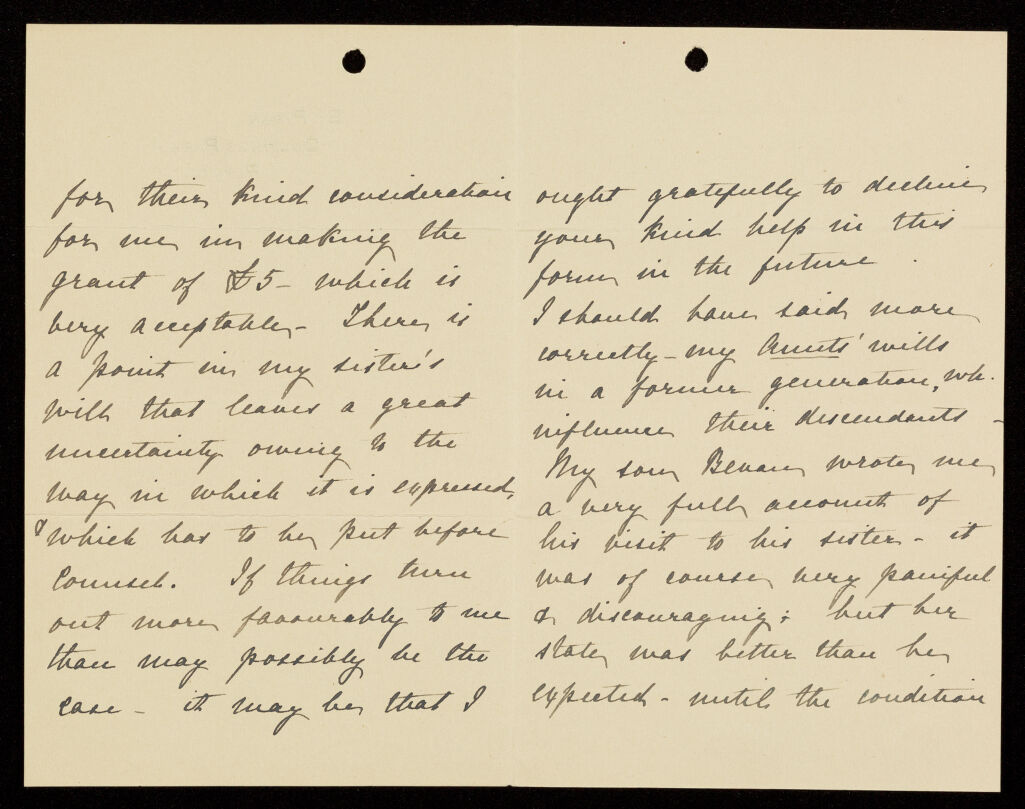 for their kind consideration
for me in making the
grant of £5 - which is
very acceptable - There is
a point in my sister's
will that leaves a great
uncertainty owing to the
way in which it is expressed,
& which has to be put before
Counsel. If things turn
out more favourably to me
than may possibly be the
case - it may be that I
ought gratefully to decline
your kind help in this
form in the future.
I should have said more
correctly - my Aunts' wills
in a former generation, wh.
influence their descendants -
My son Bevan wrote me
a very full account of
his visit to his sister - it
was of course very painful
& discouraging; but her
state was better than he
expected - until the condition